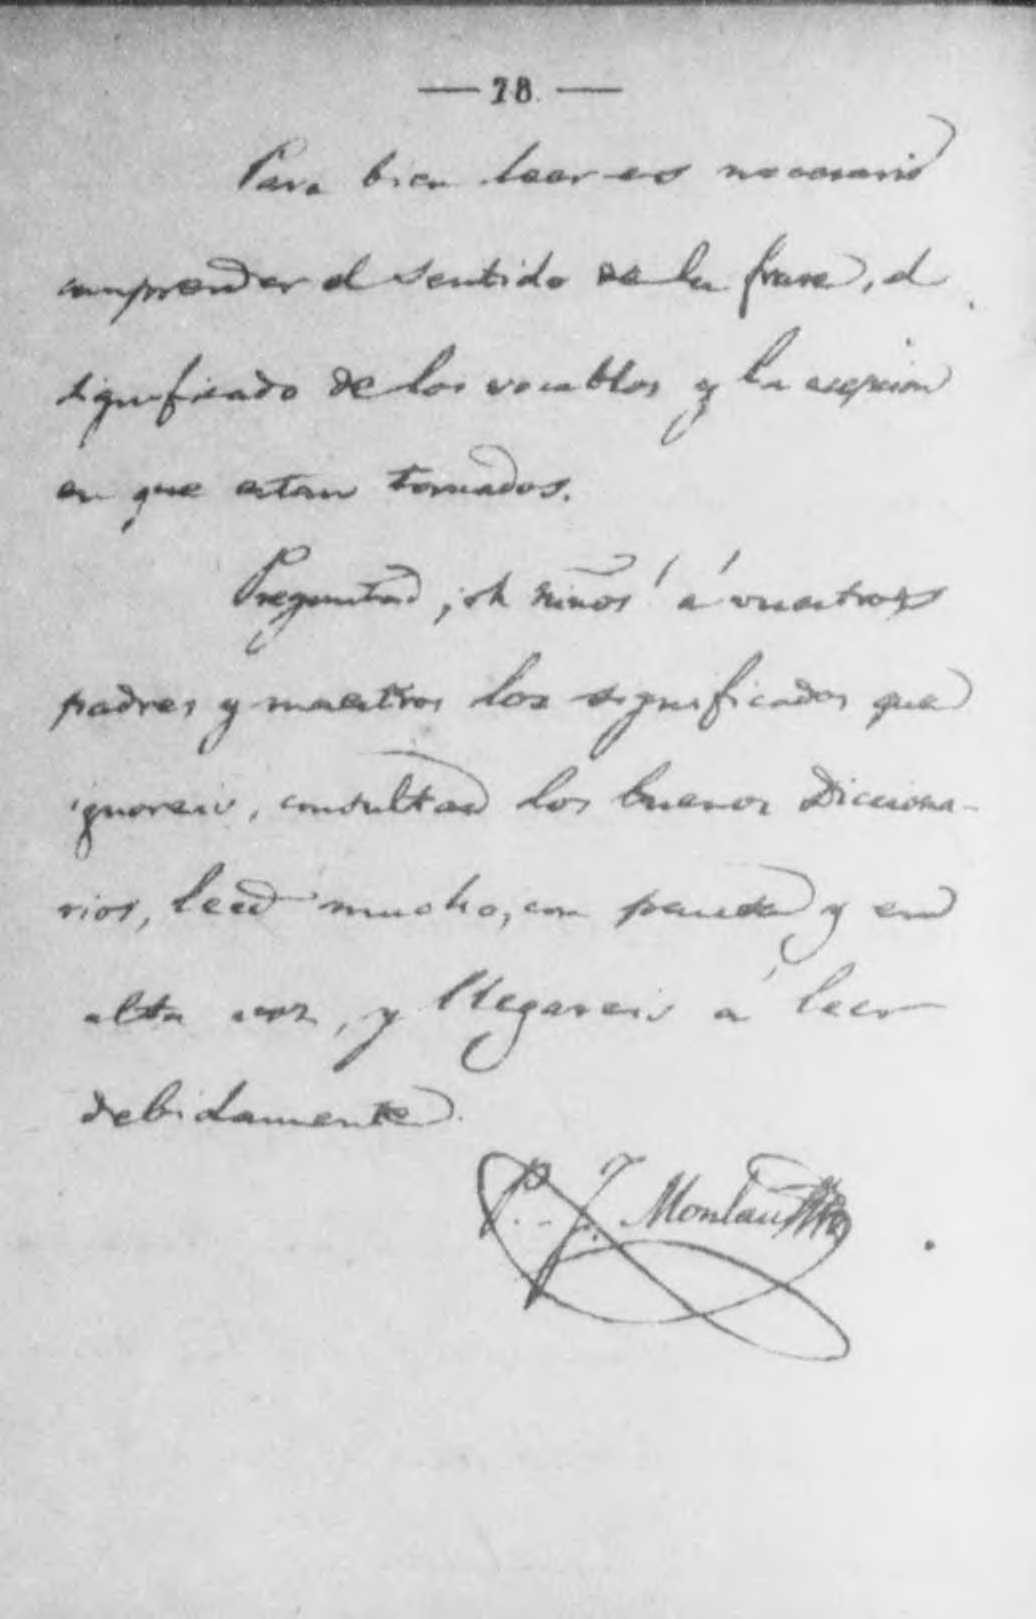 — 78 —
Para bien leer es necesario
comprender el sentido de la frase, el
significado de los vocablos y la acepcion
en que estan tomados.
Preguntad, ¡oh niños! á vuestros
padres y maestros los significados que
ignoreis, consultad los buenos Docciona-
rios, leed mucho, con pausa y en
alta voz, y llegareis á leer
debidamente.
P. F. Monlau